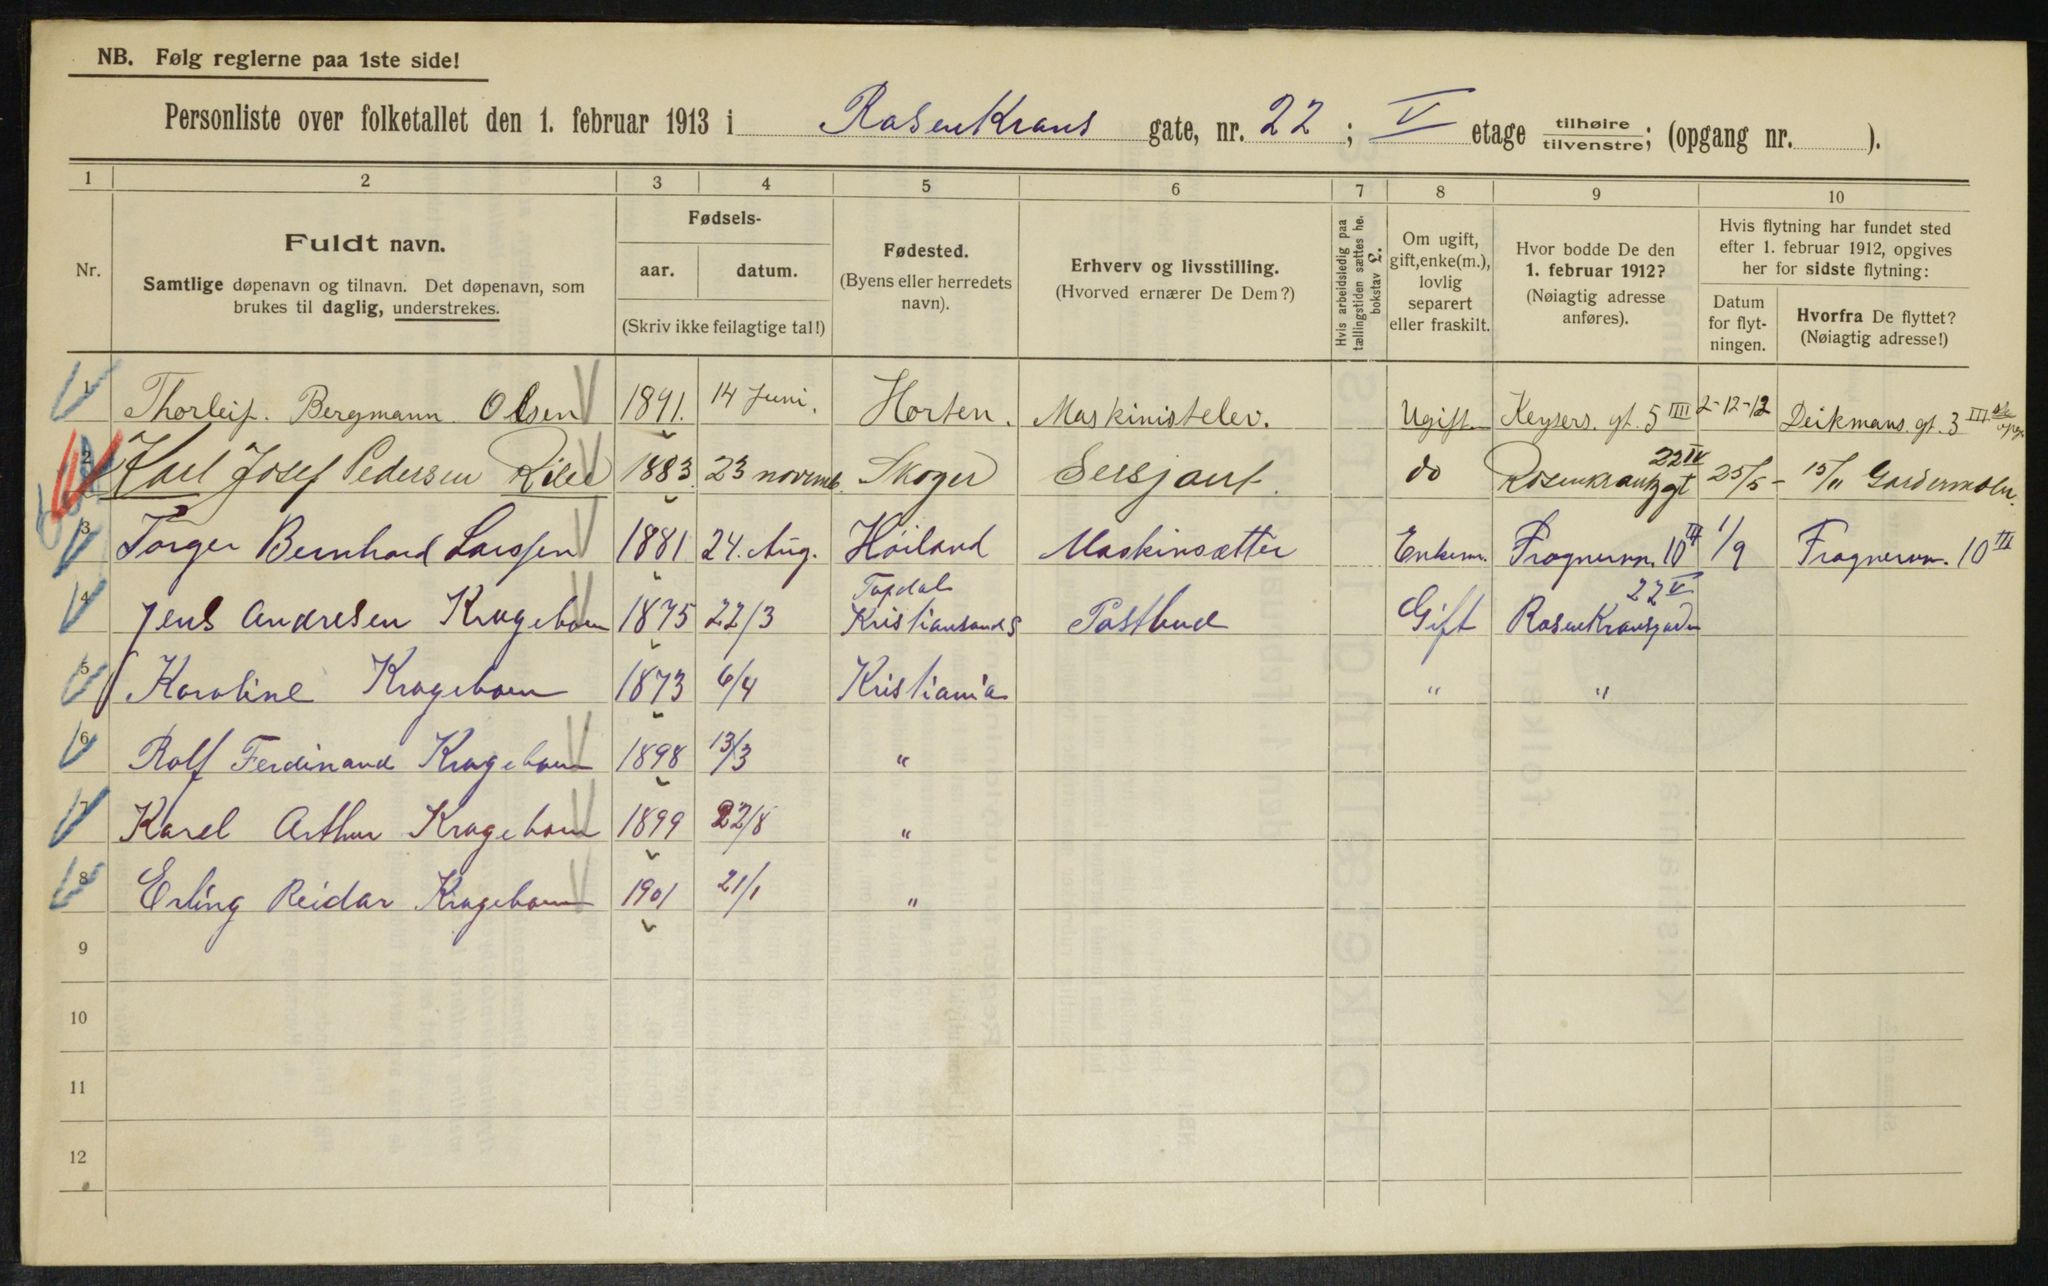 NB. Følg reglerne paa 1ste side!
Personliste over folketallet den 1. februar 1913 i RosenKrans gate, nr. 22; V etage tilhøire/tilvenstre; (opgang nr. ).
1 2 3 4 5 6 7 8 9 10
Nr.
Fuldt navn.
Samtlige døpenavn og tilnavn. Det døpenavn, som
brukes til daglig, understrekes.
Fødsels-
aar. datum.
(Skriv ikke feilagtige tal!)
Fødested.
(Byens eller herredets
navn).
Erhverv og livsstilling.
(Hvorved ernærer De Dem?)
Hvis arbeidsledig paa
tællingstiden sættes he.
bokstav L.
Om ugift,
gift, enke(m.),
lovlig
separert
eller fraskilt.
Hvor bodde De den
1. februar 1912?
(Nøiagtig adresse
anføres).
Hvis flytning har fundet sted
efter 1. februar 1912, opgives
her for sidste flytning:
Datum
for flyt-
ningen.
Hvorfra De flyttet?
(Nøiagtig adresse!)
1 Thorleif. Bergmann Olsen 1891. 14 Juni. Horten. Maskinistelev. Ugift. Keysers. gt. 5 IIII 2-12-12 Deikmans. gt. 3 III
2 Karl Josef Pedersen 1883. 23 novemb. Skoger Sersjant. do Rosenkrantz gt 22 IV 25/5 - 15/11 Gardermoen.
3 Torger Bernhard Larssen 1881 24. Aug. Høiland Maskinsætter Enkem. Frognervn. 10 III 1/9 Frognervn. 10 III
4 Jens Andresen Krageboen 1875 22/3 Topdal Kristiansands Postbud Gift RosenKransgaden 22 V
5 Karoline Krageboen 1873 6/4 Kristiania " "
6 Rolf Ferdinand Krageboen 1898 13/3 "
7 Karel Arthur Krageboen 1899 22/8 "
8 Erling Reidar Krageboen 1901 21/1 "
9
10
11
12